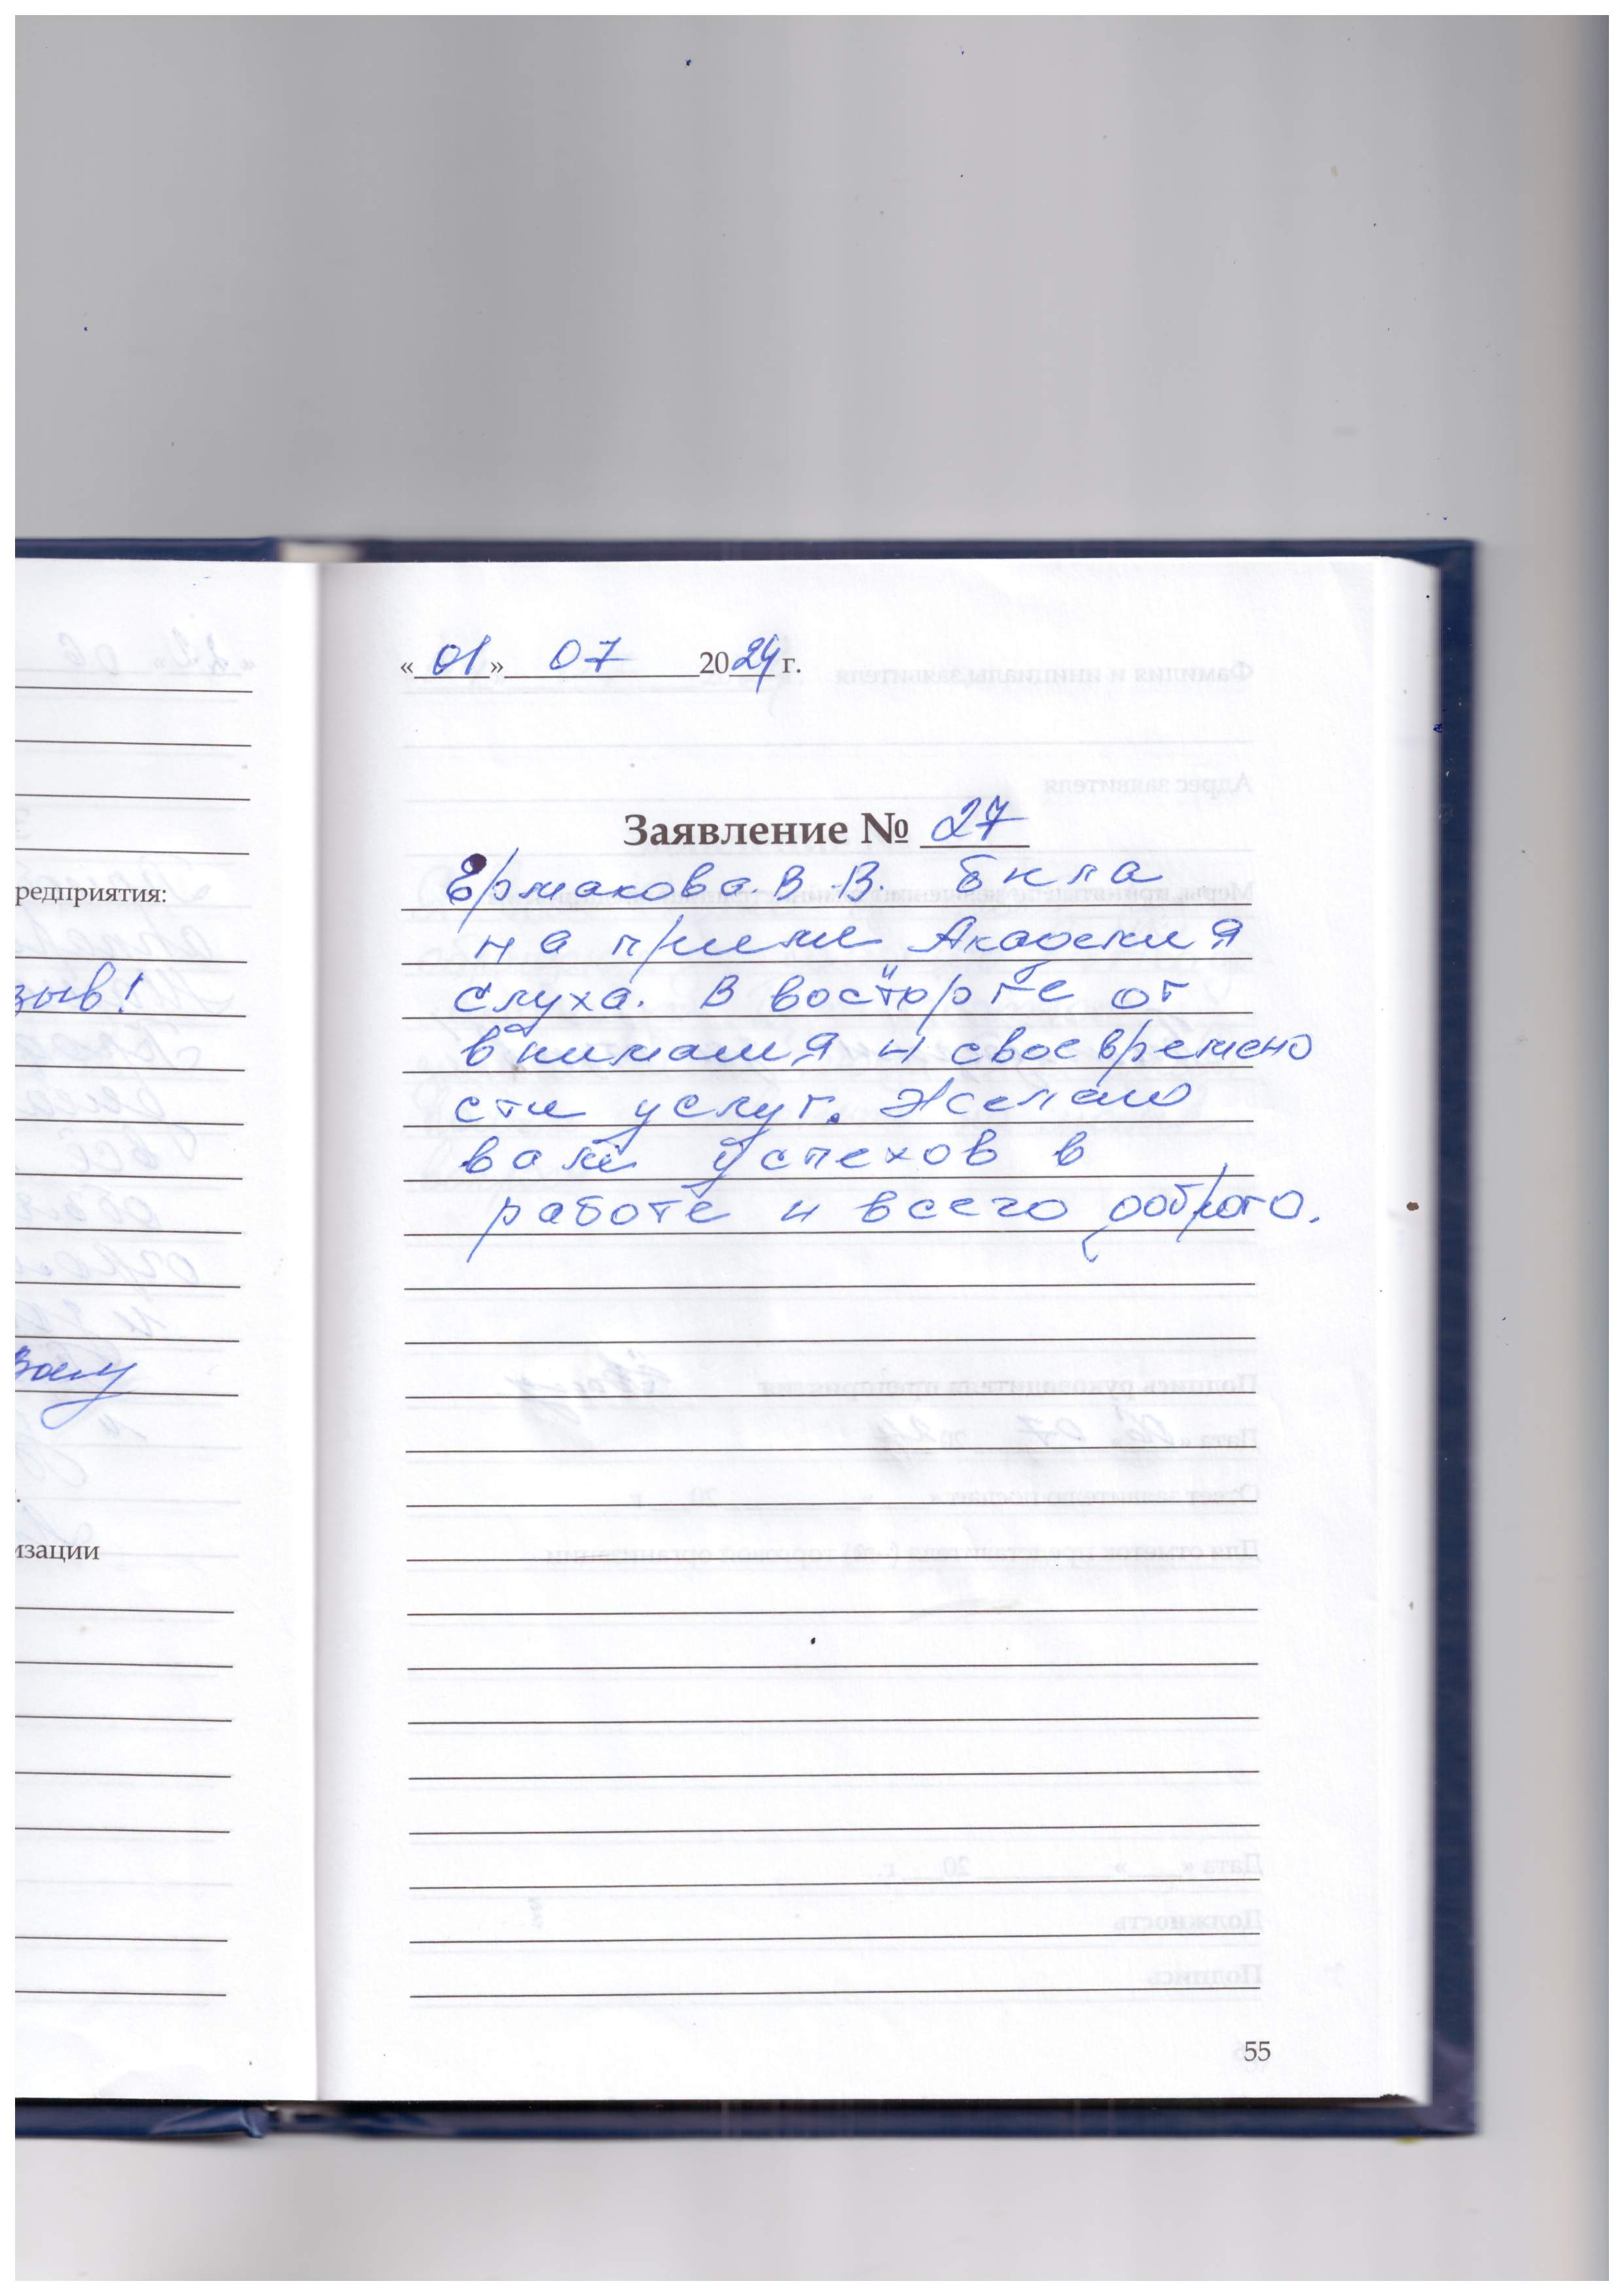 редприятия:
зыв!
изации
«01» 07 2024 г.
Заявление № 27
Ермакова В. В. была
на приеме Академия
слуха. В восторге от
внимания и своевремено
сти услуг. Желаю
вам успехов в
работе и всего доброго.
55